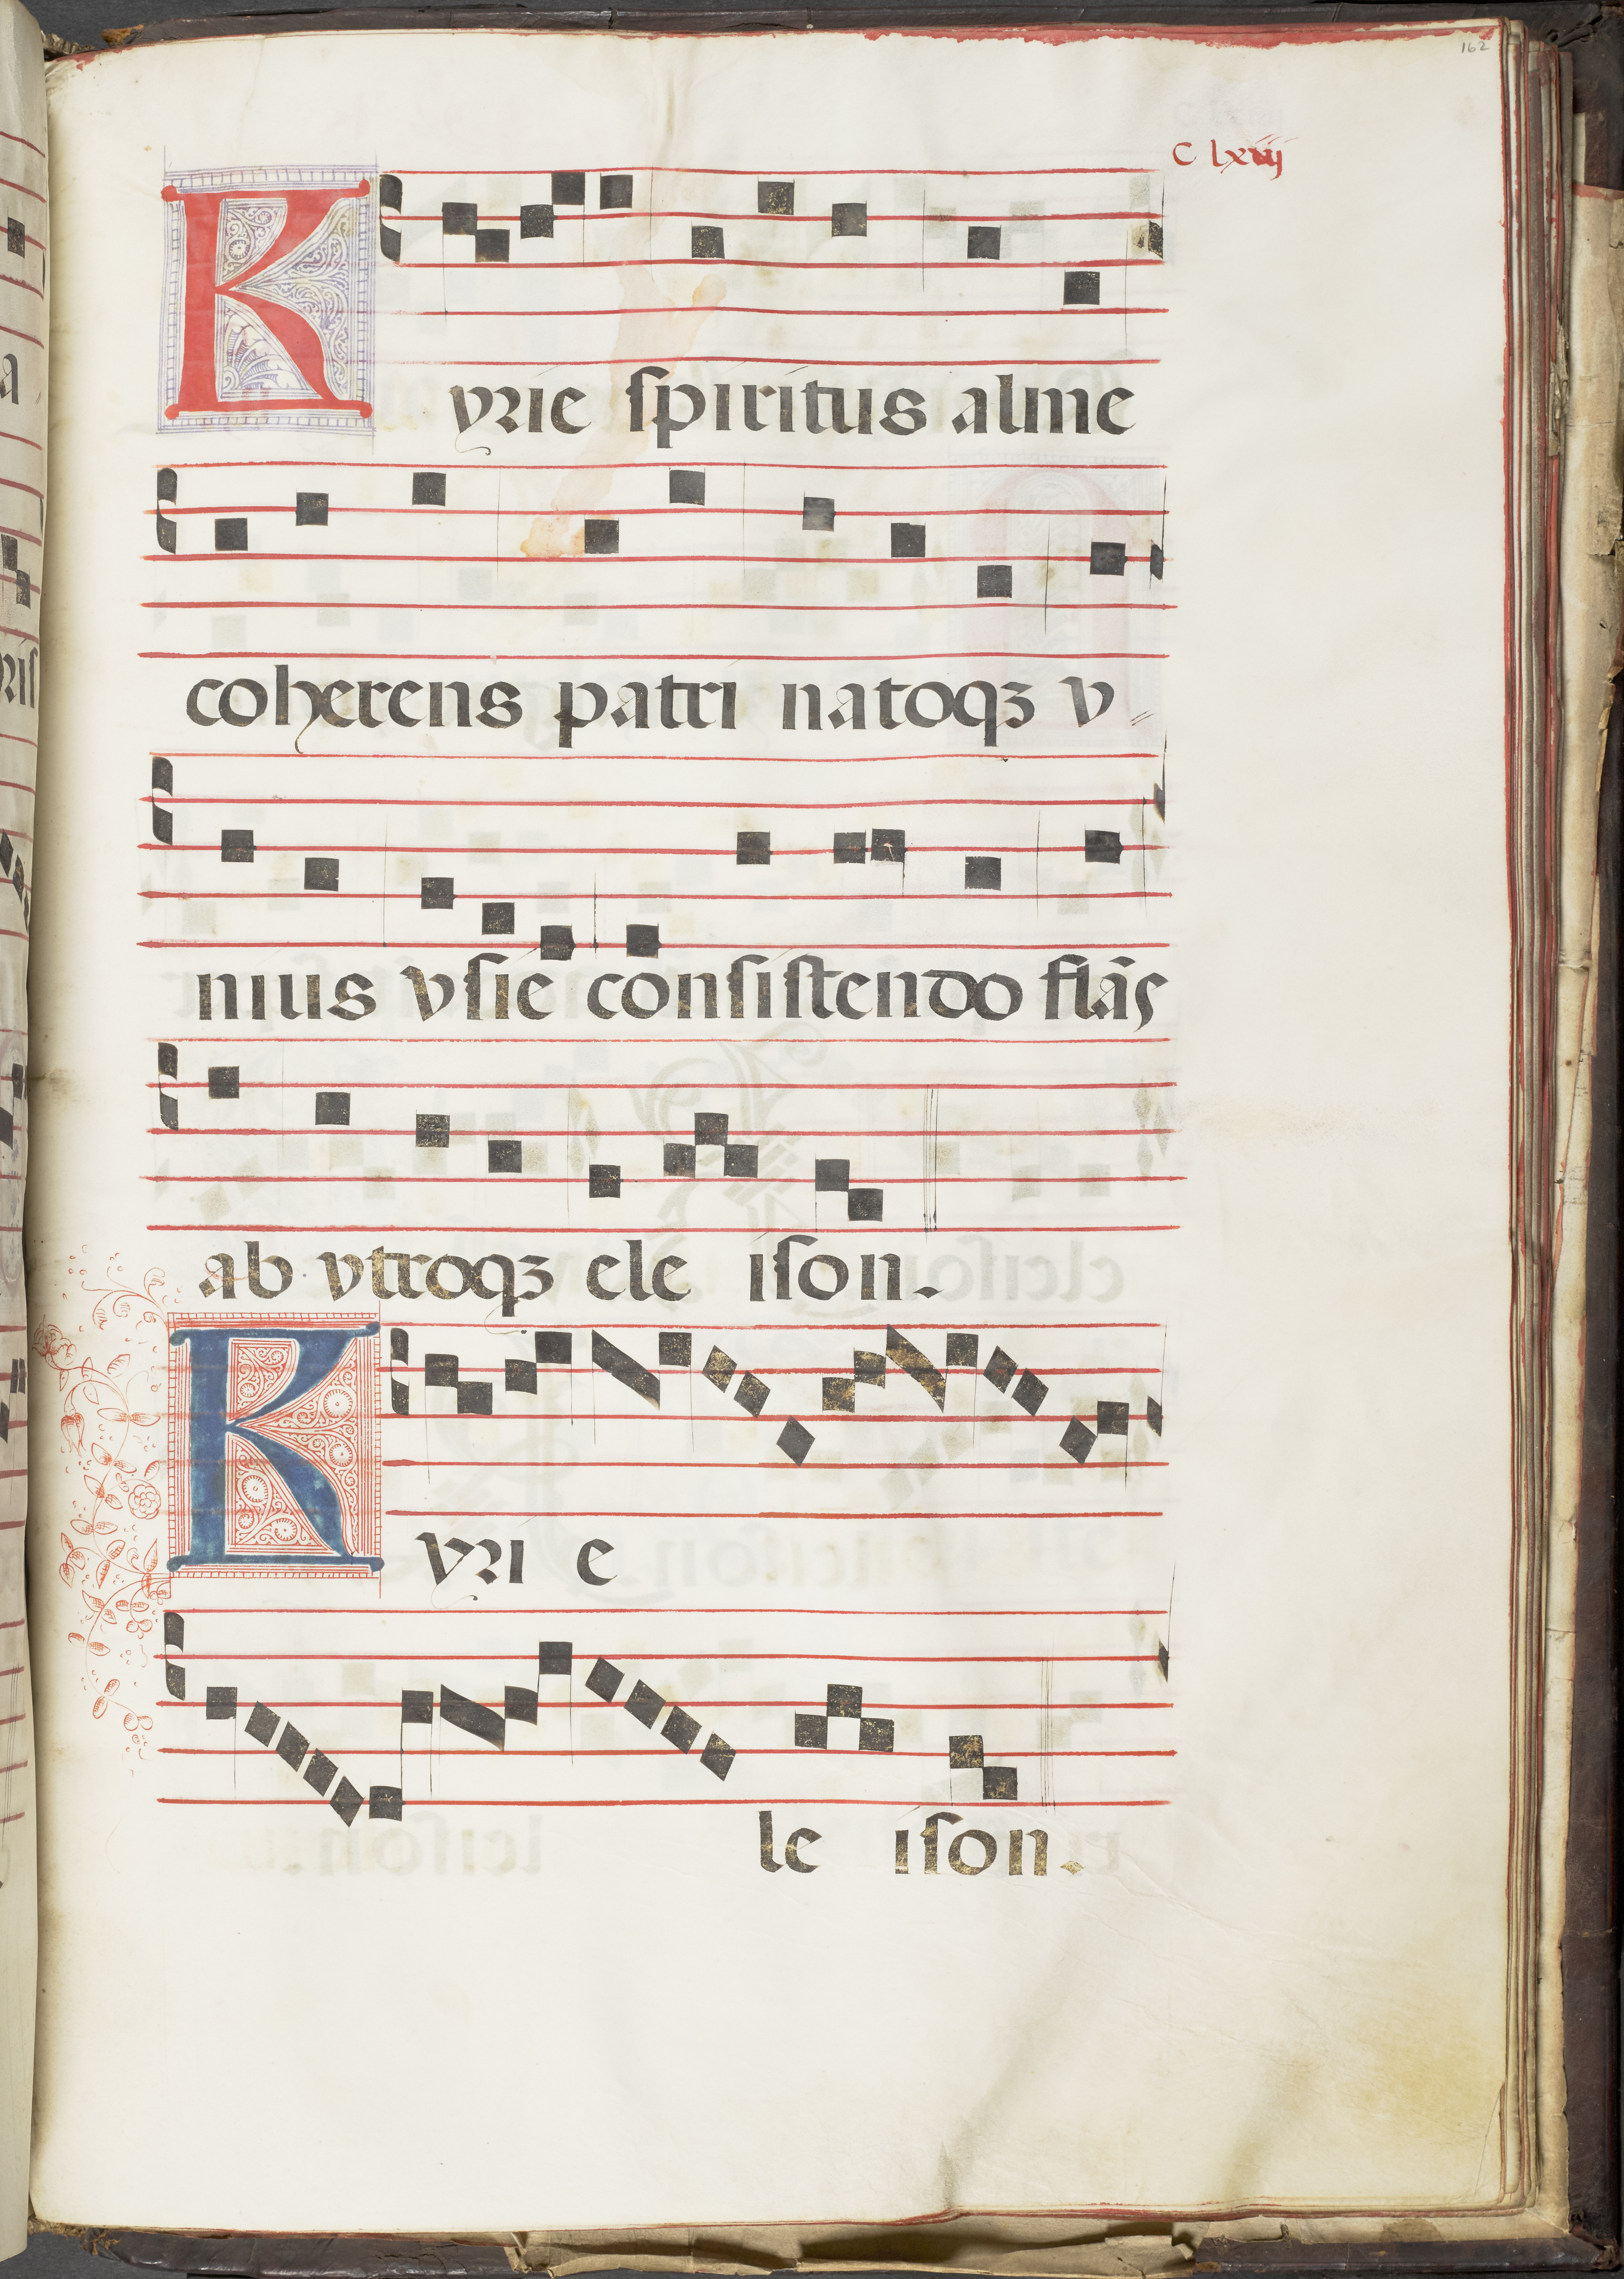 162
C lxiij
Kyrie spiritus alme
coherens patri natoqꝫ v
nius vsie consistendo flãs
ab vtroqꝫ ele ison.
Kyri e
le ison.